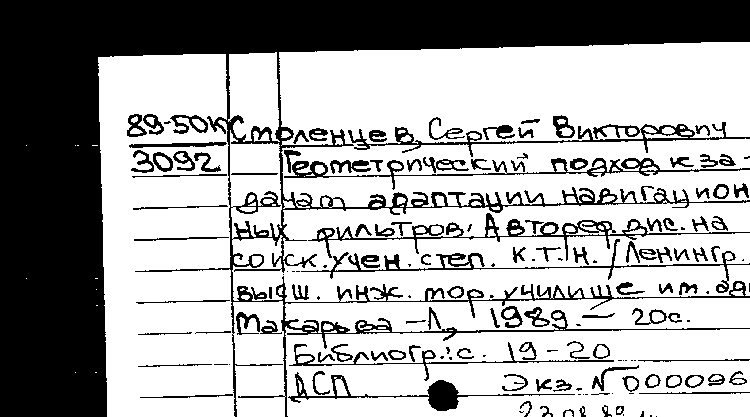 89-50К Смоленцев, Сергей Викторович
3092 Геометрический подход к за-
дачам адаптации навигацион
ных фильтров: Автореф. дис. на
соиск. учен. степ. к.т.н. / Ленингр.
высш. инж. мор. училище им. адм
Макарьва – Л., 1989. – 20с.
Библиогр.: с. 19-20
ДСП Экз. N 000096
23.08.89